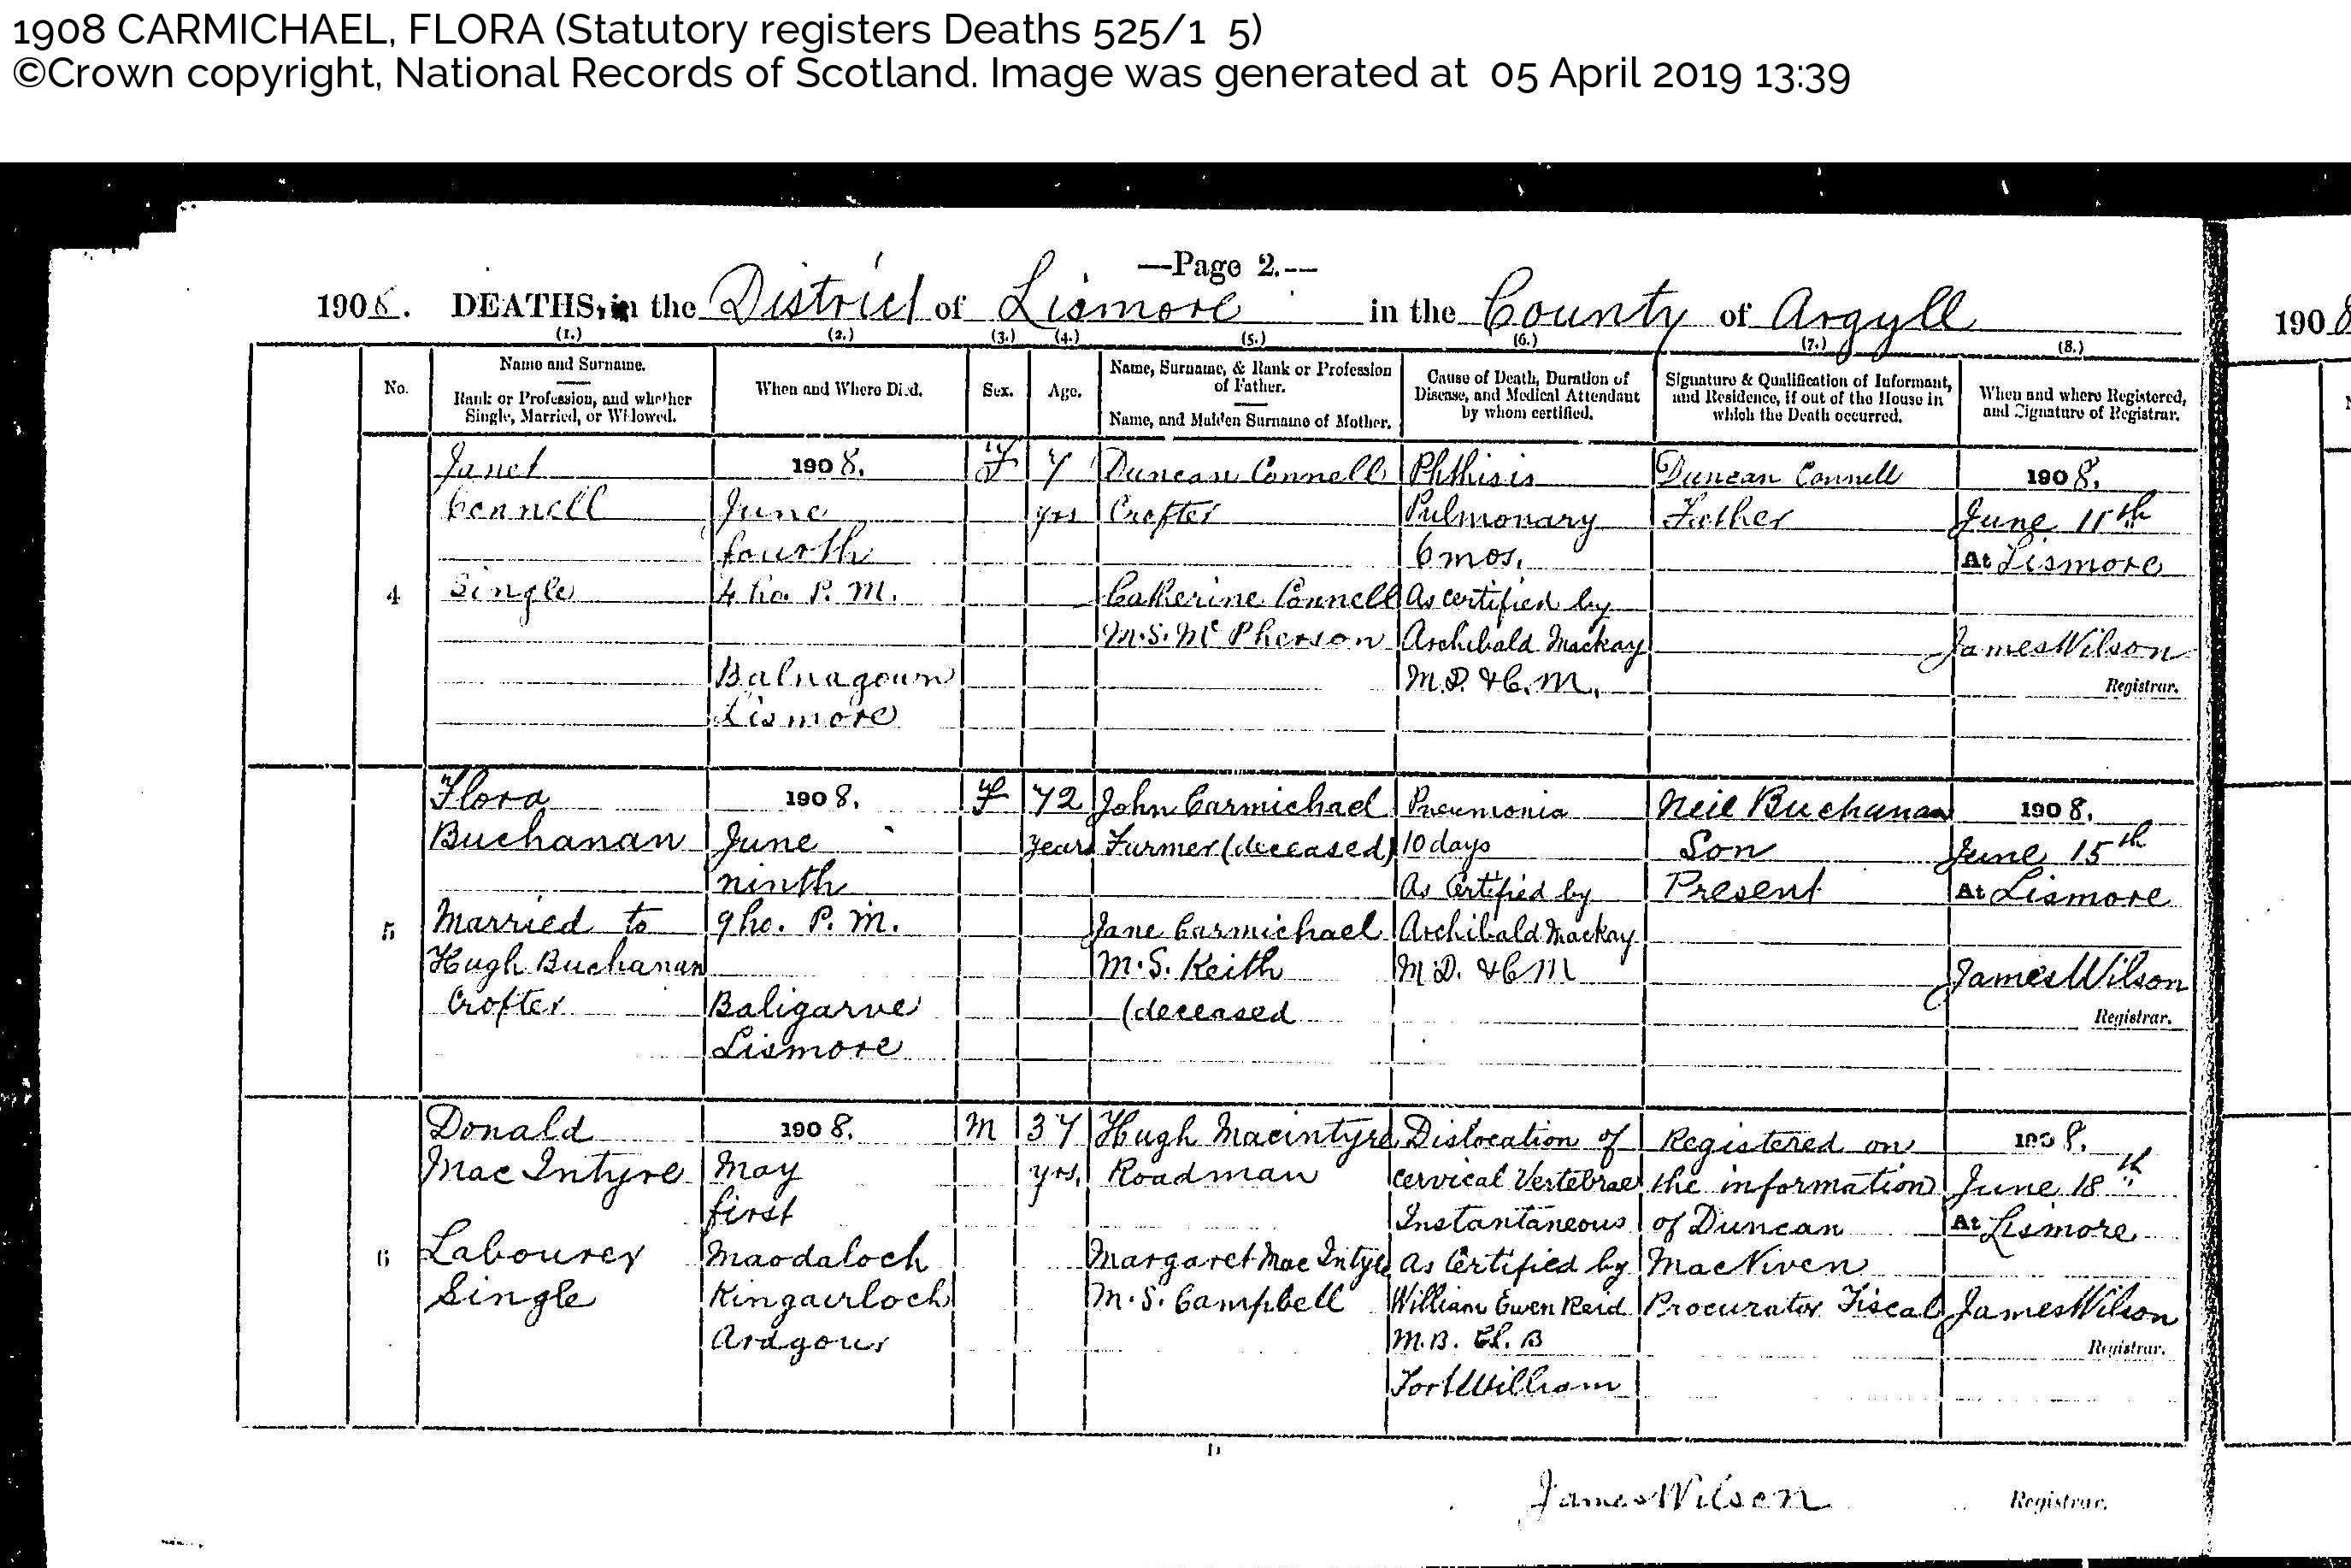 1908 CARMICHAEL, FLORA (Statutory registers Deaths 525/1 5)
©Crown copyright, National Records of Scotland. Image was generated at 05 April 2019 13:39
—Page 2.—
1908. DEATHS in the District of Lismore in the County of Argyll
(1.) (2.) (3.) (4.) (5.) (6.) (7.) (8.)
No.
Name and Surname.
Rank or Profession, and whether
Single, Married, or Widowed.
When and Where Died.
Sex.
Age.
Name, Surname, & Rank or Profession
of Father.
Name, and Maiden Surname of Mother.
Cause of Death, Duration of
Disease, and Medical Attendant
by whom certified.
Signature & Qualification of Informant,
and Residence, if out of the House in
which the Death occurred.
When and where Registered,
and Signature of Registrar.
4
Janet
Connell
Single
1908.
June
fourth
4 ho. P. M.
Balnagown
Lismore
F
7
yrs
Duncan Connell
Crofter
Catherine Connell
M.S. Mc Pherson
Phthisis
Pulmonary
6 mos.
As certified by
Archibald Mackay
M.D. & C. M.
Duncan Connell
Father
1908.
June 11th
At Lismore
James Wilson
Registrar.
5
Flora
Buchanan
Married to
Hugh Buchanan
Crofter
1908.
June
ninth
9 ho. P. M.
Baligarve
Lismore
F
72
years
John Carmichael
Farmer (deceased)
Jane Carmichael
M.S. Keith
(deceased
Pneumonia
10 days
As Certified by
Archibald Mackay
M.D. & C M
Neil Buchanan
Son
Present
1908.
June 15th
At Lismore
James Wilson
Registrar.
6
Donald
Mac Intyre
Labourer
Single
1908.
May
first
Maodaloch
Kingairloch
Ardgour
M
37
yrs.
Hugh Macintyre
Roadman
Margaret Mac Intyre
M.S. Campbell
Dislocation of
cervical Vertebrae
Instantaneous
As Certified by
William Ewen Reid
M.B. Ch. B
Fort William
Registered on
the information
of Duncan
MacNiven
Procurator Fiscal
1908.
June 18th
At Lismore
James Wilson
Registrar.
James Wilson Registrar.
1908